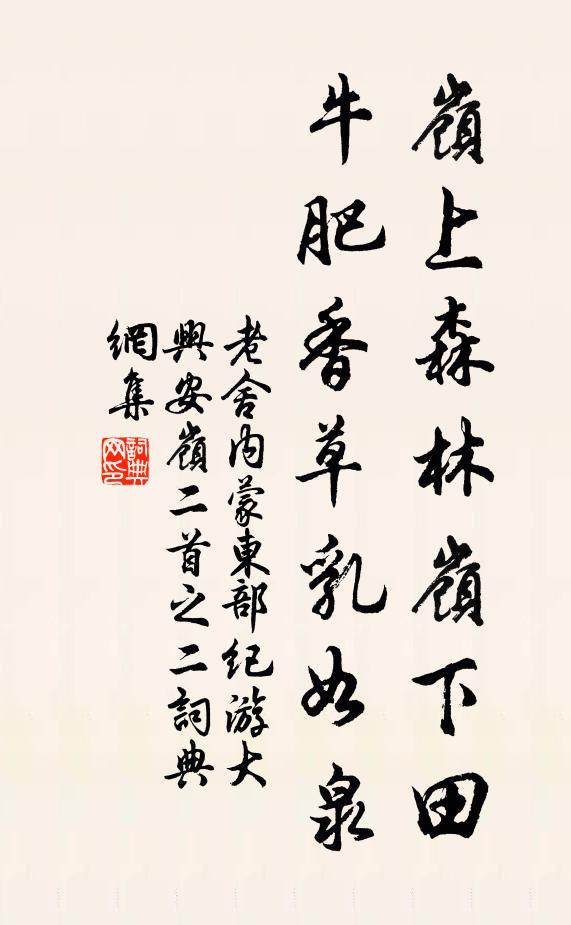 嶺上森林嶺下田
牛肥香草乳如泉
老舍內蒙東部纪游大
興安嶺二首之二詞典
網集
詞典
网印